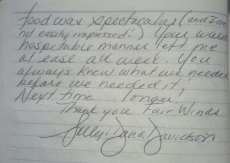 food was spectacular (and I am
not easily impressed!) Your warm
hospitable manner left me
at ease all week. You
always knew what we needed
before we needed it!
Next time longer!
Thank you Fair Winds
Davidson